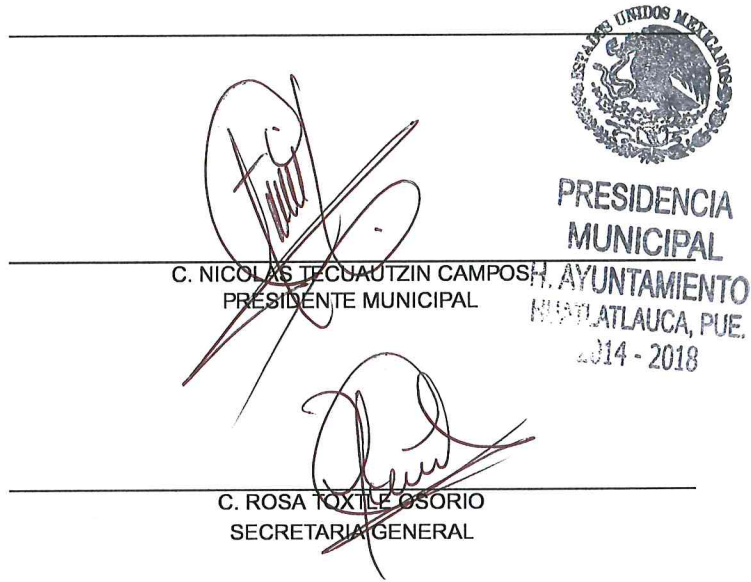 ESTADOS UNIDOS MEXICANOS
PRESIDENCIA
MUNICIPAL
H. AYUNTAMIENTO
HUATLATLAUCA, PUE.
2014 - 2018
C. NICOLAS TECUAUTZIN CAMPOS
PRESIDENTE MUNICIPAL
C. ROSA TOXTLE OSORIO
SECRETARIA GENERAL